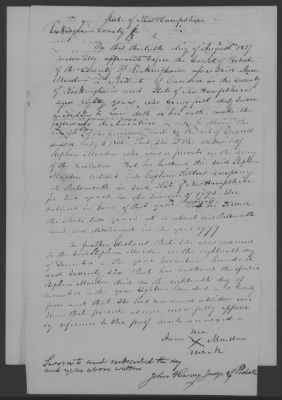 State of New Hampshire
Rockingham County Ss
On this tenth day of August 1837
personally appeared before the Court of Probate
of the County of Rockingham aforesaid Anna
Marden a resident of Candia in the County
of Rockingham and State of New Hampshire
aged eighty years, who being first duly sworn
according to law doth on her oath, make the
following declaration in order to obtain the
benefit of the provision made by the act of Congress
passed July 4, 1836. That she is the widow of
Stephen Marden who was a private in the army
of the revolution. That her husband the said Stephen
Marden enlisted into Captain company
at Portsmouth in said State of New Hampshire
for two years in the summer of 1775. She
believes in June of that year. That he served
the above two years at or about said Portsmouth
and was discharged in the year 1777
She further declares that she was married
to the said Stephen Marden on the eighteenth day
of December in the year seventeen hundred
and seventy six that her husband the aforesaid
Stephen Marden died on the eighteenth day of
December in the year eighteen hundred and twenty
four and that she has remained a widow ever
since that period as will more fully appear
by reference to the proof hereto annexed
her
Anna X Marden
mark
Sworn to and subscribed the day
and year above written
John Harvey Judge of Probate